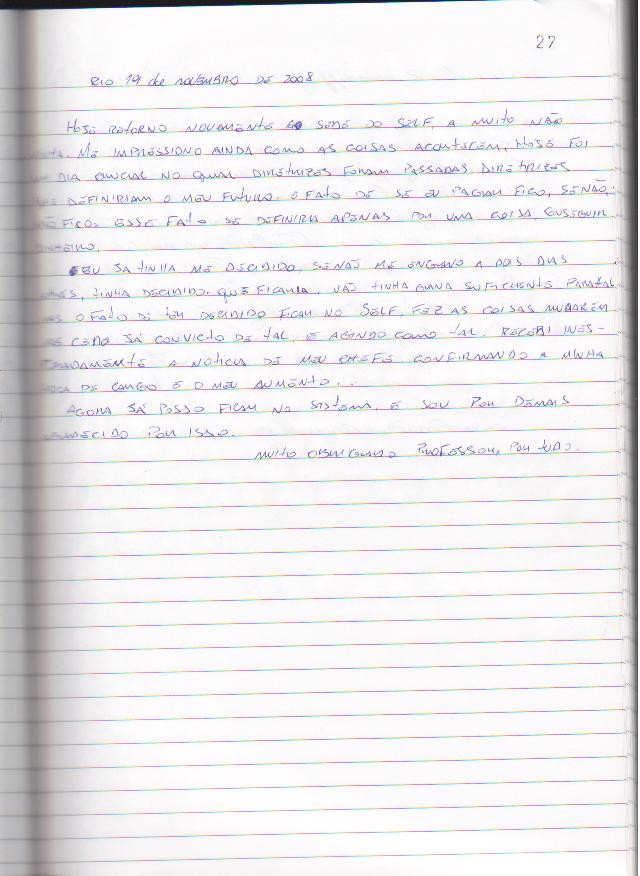 27
RIO 19 de NOVEMBRO DE 2008
HOJE RETORNO NOVAMENTE AO SEDE DO SELF, A MUITO NÃO
ME IMPRESSIONO AINDA COMO AS COISAS ACONTESCEM, HOJE FOI
DIA CRUCIAL NO QUAL DIRETRIZES FORAM PASSADAS. DIRETRIZES
DEFINIRIAM O MEU FUTURO. O FATO DE SE EU PAGAR FICO, SENÃO,
NÃO FICO. ESSE FATO SE DEFINIRIA APENAS POR UMA COISA, CONSEGUIR
DINHEIRO.
EU JA TINHA ME DECIDIDO, SE NÃO ME ENGANO A DOIS DIAS
TINHA DECIDIDO QUE FICARIA, NÃO TINHA GRANA SUFICIENTE PARA TAL
O FATO DE TER DECIDIDO FICAR NO SELF, FEZ AS COISAS MUDAREM
CEDO JÁ CONVICTO DE TAL, E AGINDO COMO TAL. RECEBI INES-
PERADAMENTE A NOTICIA DE MEU CHEFE CONFIRMANDO A MINHA
DE CARGO E O MEU AUMENTO...
AGORA JÁ POSSO FICAR NO SISTEMA, E SOU POR DEMAIS
POR ISSO.
MUITO OBRIGADO PROFESSOR, POR TUDO.